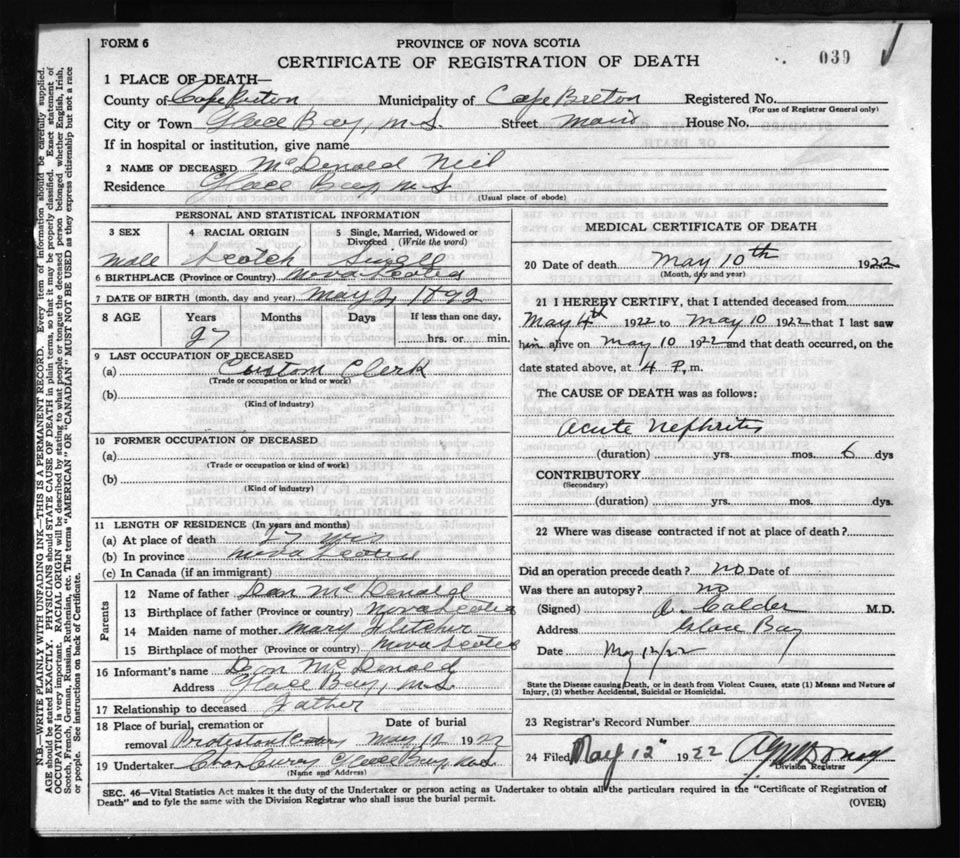 FORM 6
PROVINCE OF NOVA SCOTIA
039
CERTIFICATE OF REGISTRATION OF DEATH
1 PLACE OF DEATH—
County of Cape Breton Municipality of Cape Breton Registered No.
(For use of Registrar General only)
City or Town Glace Bay, N.S. Street Main House No.
If in hospital or institution, give name
2 NAME OF DECEASED McDonald Neil
Residence Glace Bay N.S.
(Usual place of abode)
PERSONAL AND STATISTICAL INFORMATION
3 SEX 4 RACIAL ORIGIN 5 Single, Married, Widowed or
Divorced (Write the word)
Male Scotch Single
6 BIRTHPLACE (Province or Country) Nova Scotia
7 DATE OF BIRTH (month, day and year) May 2, 1892
8 AGE Years Months Days If less than one day,
hrs. or min.
27
9 LAST OCCUPATION OF DECEASED
(a) Custom Clerk
(Trade or occupation or kind or work)
(b)
(Kind of industry)
10 FORMER OCCUPATION OF DECEASED
(a)
(Trade or occupation or kind or work)
(b)
(Kind of industry)
11 LENGTH OF RESIDENCE (In years and months)
(a) At place of death 27 yrs
(b) In province Nova Scotia
(c) In Canada (if an immigrant)
Parents
12 Name of father Dan McDonald
13 Birthplace of father (Province or country) Nova Scotia
14 Maiden name of mother Mary Fletcher
15 Birthplace of mother (Province or country) Nova Scotia
16 Informant's name Dan McDonald
Address Glace Bay, N.S.
17 Relationship to deceased Father
18 Place of burial, cremation or Date of burial
removal Protestant May 12 1922
19 Undertaker Glace Bay N.S.
(Name and Address)
MEDICAL CERTIFICATE OF DEATH
20 Date of death May 10th 1922
(Month, day and year)
21 I HEREBY CERTIFY, that I attended deceased from
May 4th 1922 to May 10 1922 that I last saw
him alive on May 10 1922 and that death occurred, on the
date stated above, at 4 P. m.
The CAUSE OF DEATH was as follows:
Acute Nephritis
(duration) yrs. mos. 6 dys
CONTRIBUTORY
(Secondary)
(duration) yrs. mos. dys.
22 Where was disease contracted if not at place of death?
Did an operation precede death? No Date of
Was there an autopsy? No
(Signed) Calder M.D.
Address Glace Bay
Date May 12/22
State the Disease causing Death, or in death from Violent Causes, state (1) Means and Nature of
Injury, (2) whether Accidental, Suicidal or Homicidal.
23 Registrar's Record Number
24 Filed May 12" 1922
Division Registrar
SEC. 46—Vital Statistics Act makes it the duty of the Undertaker or person acting as Undertaker to obtain all the particulars required in the "Certificate of Registration of
Death" and to fyle the same with the Division Registrar who shall issue the burial permit.
(OVER)
N.B.—WRITE PLAINLY WITH UNFADING INK—THIS IS A PERMANENT RECORD. Every item of information should be carefully supplied.
AGE should be stated EXACTLY. PHYSICIANS should STATE CAUSE OF DEATH in plain terms, so that it may be properly classified. Exact statement of
OCCUPATION is very important. RACIAL ORIGIN will be described by stating to what people or tongue the deceased person belonged whether English, Irish,
Scotch, French, German, Russian, Ruthenian, etc. The terms "AMERICAN" OR "CANADIAN" MUST NOT BE USED as they express citizenship but not a race
or people. See instructions on back of Certificate.